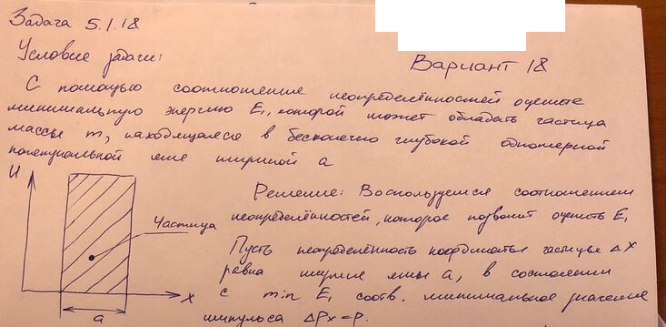 Задача 5.1.18
Условие задачи:
Вариант 18
С помощью соотношение неопределённостей оцените
минимальную энергию E₁, которой может обладать частица
массы m, находящаяся в бесконечно глубокой одномерной
потенциальной яме шириной a
U
Частица
x
a
Решение: Воспользуемся соотношением
неопределённостей, которое позволит оценить E₁
Пусть неопределённость координаты частицы Δx
равна ширине ямы a, в состоянии
с min E₁ соотв. минимальное значение
импульса ΔPx = P.